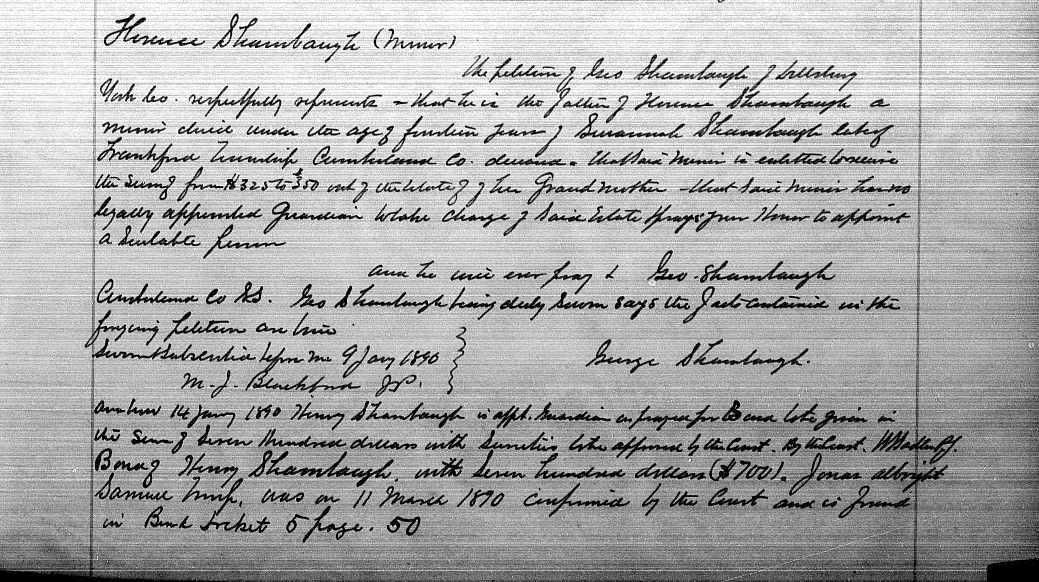 Florence Shambaugh (Minor)
The petition of Geo Shambaugh of Dillsburg
York Co. respectfully represents - that he is the father of Florence Shambaugh a
minor child under the age of fourteen years of Susannah Shambaugh late of
Frankford Township Cumberland Co. deceased. that said minor is entitled to receive
the sum of from $325 to $350 out of the Estate of her Grandmother - that said minor has no
legally appointed Guardian to take charge of said Estate & prays your Honor to appoint
a suitable person
and he will ever pray & Geo. Shambaugh
Cumberland Co SS. Geo Shambaugh being duly sworn says the facts contained in the
forgoing petition are true
Sworn & subscribed before me 9 Jany 1890
George Shambaugh.
M. J. Blackford JP.
And now 14 Jany 1890 Henry Shambaugh is appt. Guardian as prayed for Bond to be given in
the sum of Seven Hundred dollars with Sureties to be approved by the Court. By the Court. W F Sadler P.J.
Bond of Henry Shambaugh, with Seven hundred dollars ($700). Jonas Albright
Samuel, was on 11 March 1890 confirmed by the Court and is found
in Bond Docket 5 page. 50